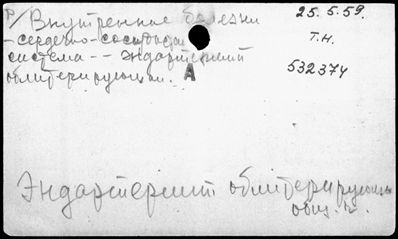 Р/ Внутренние болезни
25.5.59.
-сердечно-сосудистая
Т.Н.
система -- Эндартериит
облитерирующий. А
532374
Эндартериит облитерирующий
общ.